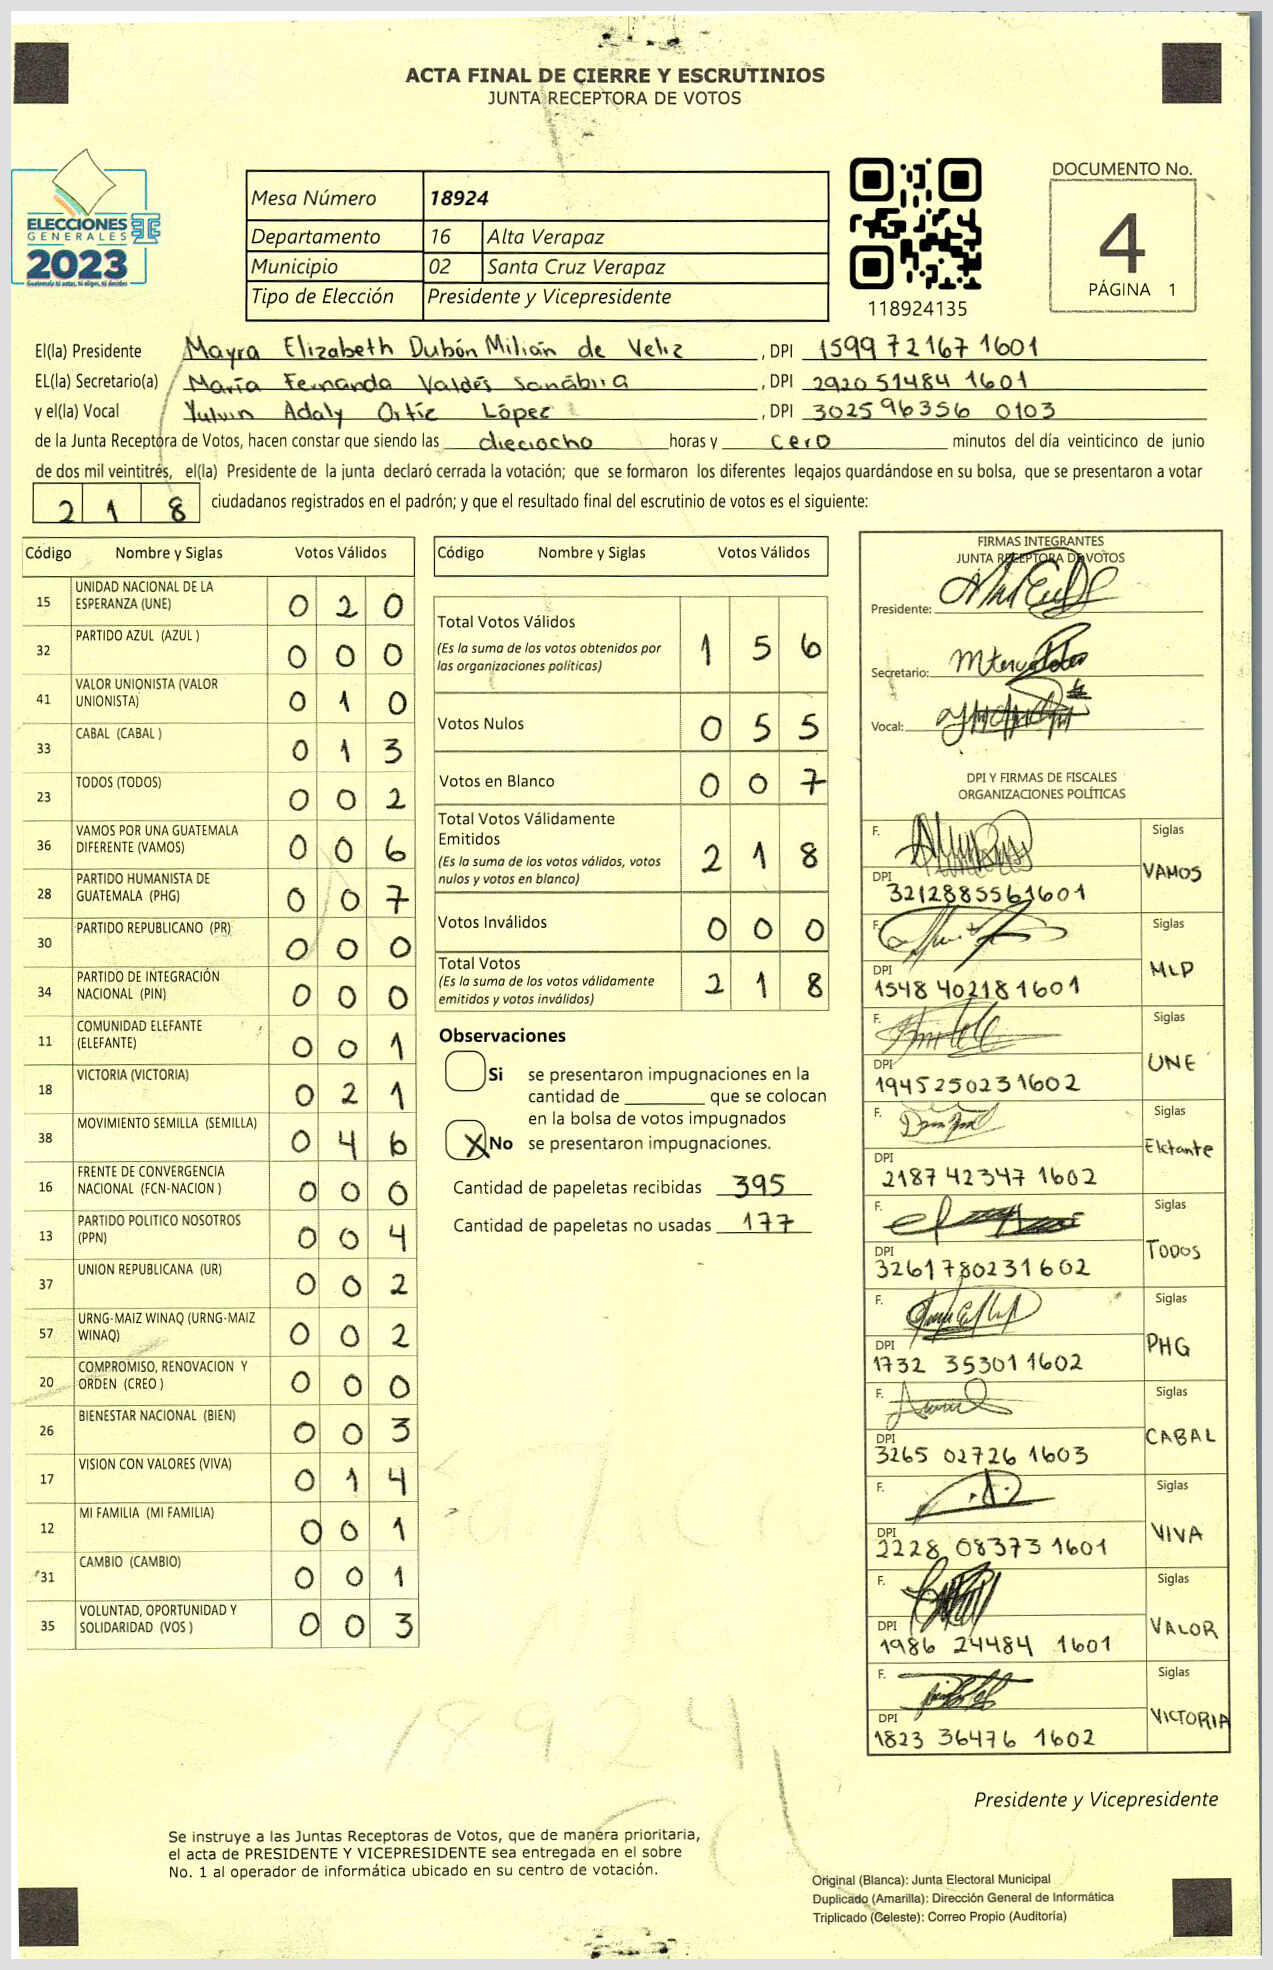 ACTA FINAL DE CIERRE Y ESCRUTINIOS
JUNTA RECEPTORA DE VOTOS
ELECCIONES
GENERALES
2023
Mesa Número 18924
Departamento 16 Alta Verapaz
Municipio 02 Santa Cruz Verapaz
Tipo de Elección Presidente y Vicepresidente
118924135
DOCUMENTO No.
4
PÁGINA 1
El(la) Presidente Mayra Elizabeth Dubón Milián de Veliz, DPI 1599 72167 1601
EL(la) Secretario(a) María Fernanda Valdés Sanábria, DPI 2920 51484 1601
y el(la) Vocal Yulvin Adaly Ortíz López, DPI 302596356 0103
de la Junta Receptora de Votos, hacen constar que siendo las dieciocho horas y cero minutos del día veinticinco de junio
de dos mil veintitrés, el(la) Presidente de la junta declaró cerrada la votación; que se formaron los diferentes legajos guardándose en su bolsa, que se presentaron a votar
218 ciudadanos registrados en el padrón; y que el resultado final del escrutinio de votos es el siguiente:
Código Nombre y Siglas Votos Válidos
15 UNIDAD NACIONAL DE LA ESPERANZA (UNE) 0 2 0
32 PARTIDO AZUL (AZUL ) 0 0 0
41 VALOR UNIONISTA (VALOR UNIONISTA) 0 1 0
33 CABAL (CABAL ) 0 1 3
23 TODOS (TODOS) 0 0 2
36 VAMOS POR UNA GUATEMALA DIFERENTE (VAMOS) 0 0 6
28 PARTIDO HUMANISTA DE GUATEMALA (PHG) 0 0 7
30 PARTIDO REPUBLICANO (PR) 0 0 0
34 PARTIDO DE INTEGRACIÓN NACIONAL (PIN) 0 0 0
11 COMUNIDAD ELEFANTE (ELEFANTE) 0 0 1
18 VICTORIA (VICTORIA) 0 2 1
38 MOVIMIENTO SEMILLA (SEMILLA) 0 4 6
16 FRENTE DE CONVERGENCIA NACIONAL (FCN-NACION ) 0 0 0
13 PARTIDO POLITICO NOSOTROS (PPN) 0 0 4
37 UNION REPUBLICANA (UR) 0 0 2
57 URNG-MAIZ WINAQ (URNG-MAIZ WINAQ) 0 0 2
20 COMPROMISO, RENOVACION Y ORDEN (CREO ) 0 0 0
26 BIENESTAR NACIONAL (BIEN) 0 0 3
17 VISION CON VALORES (VIVA) 0 1 4
12 MI FAMILIA (MI FAMILIA) 0 0 1
31 CAMBIO (CAMBIO) 0 0 1
35 VOLUNTAD, OPORTUNIDAD Y SOLIDARIDAD (VOS ) 0 0 3
Código Nombre y Siglas Votos Válidos
Total Votos Válidos 1 5 6
(Es la suma de los votos obtenidos por
las organizaciones políticas)
Votos Nulos 0 5 5
Votos en Blanco 0 0 7
Total Votos Válidamente
Emitidos 2 1 8
(Es la suma de los votos válidos, votos
nulos y votos en blanco)
Votos Inválidos 0 0 0
Total Votos 2 1 8
(Es la suma de los votos válidamente
emitidos y votos inválidos)
Observaciones
Si se presentaron impugnaciones en la
cantidad de ________ que se colocan
en la bolsa de votos impugnados
X No se presentaron impugnaciones.
Cantidad de papeletas recibidas 395
Cantidad de papeletas no usadas 177
FIRMAS INTEGRANTES
JUNTA RECEPTORA DE VOTOS
Presidente:
Secretario:
Vocal:
DPI Y FIRMAS DE FISCALES
ORGANIZACIONES POLÍTICAS
F. Siglas
DPI 3212885561601 VAMOS
F. Siglas
DPI 1548 402181601 MLP
F. Siglas
DPI 1945250231602 UNE
F. Siglas
DPI 2187 42347 1602 Elefante
F. Siglas
DPI 3261780231602 TODOS
F. Siglas
DPI 1732 35301 1602 PHG
F. Siglas
DPI 3265 02726 1603 CABAL
F. Siglas
DPI 2228 08373 1601 VIVA
F. Siglas
DPI 1986 24484 1601 VALOR
F. Siglas
DPI 1823 36476 1602 VICTORIA
18924
Presidente y Vicepresidente
Se instruye a las Juntas Receptoras de Votos, que de manera prioritaria,
el acta de PRESIDENTE Y VICEPRESIDENTE sea entregada en el sobre
No. 1 al operador de informática ubicado en su centro de votación.
Original (Blanca): Junta Electoral Municipal
Duplicado (Amarilla): Dirección General de Informática
Triplicado (Celeste): Correo Propio (Auditoría)